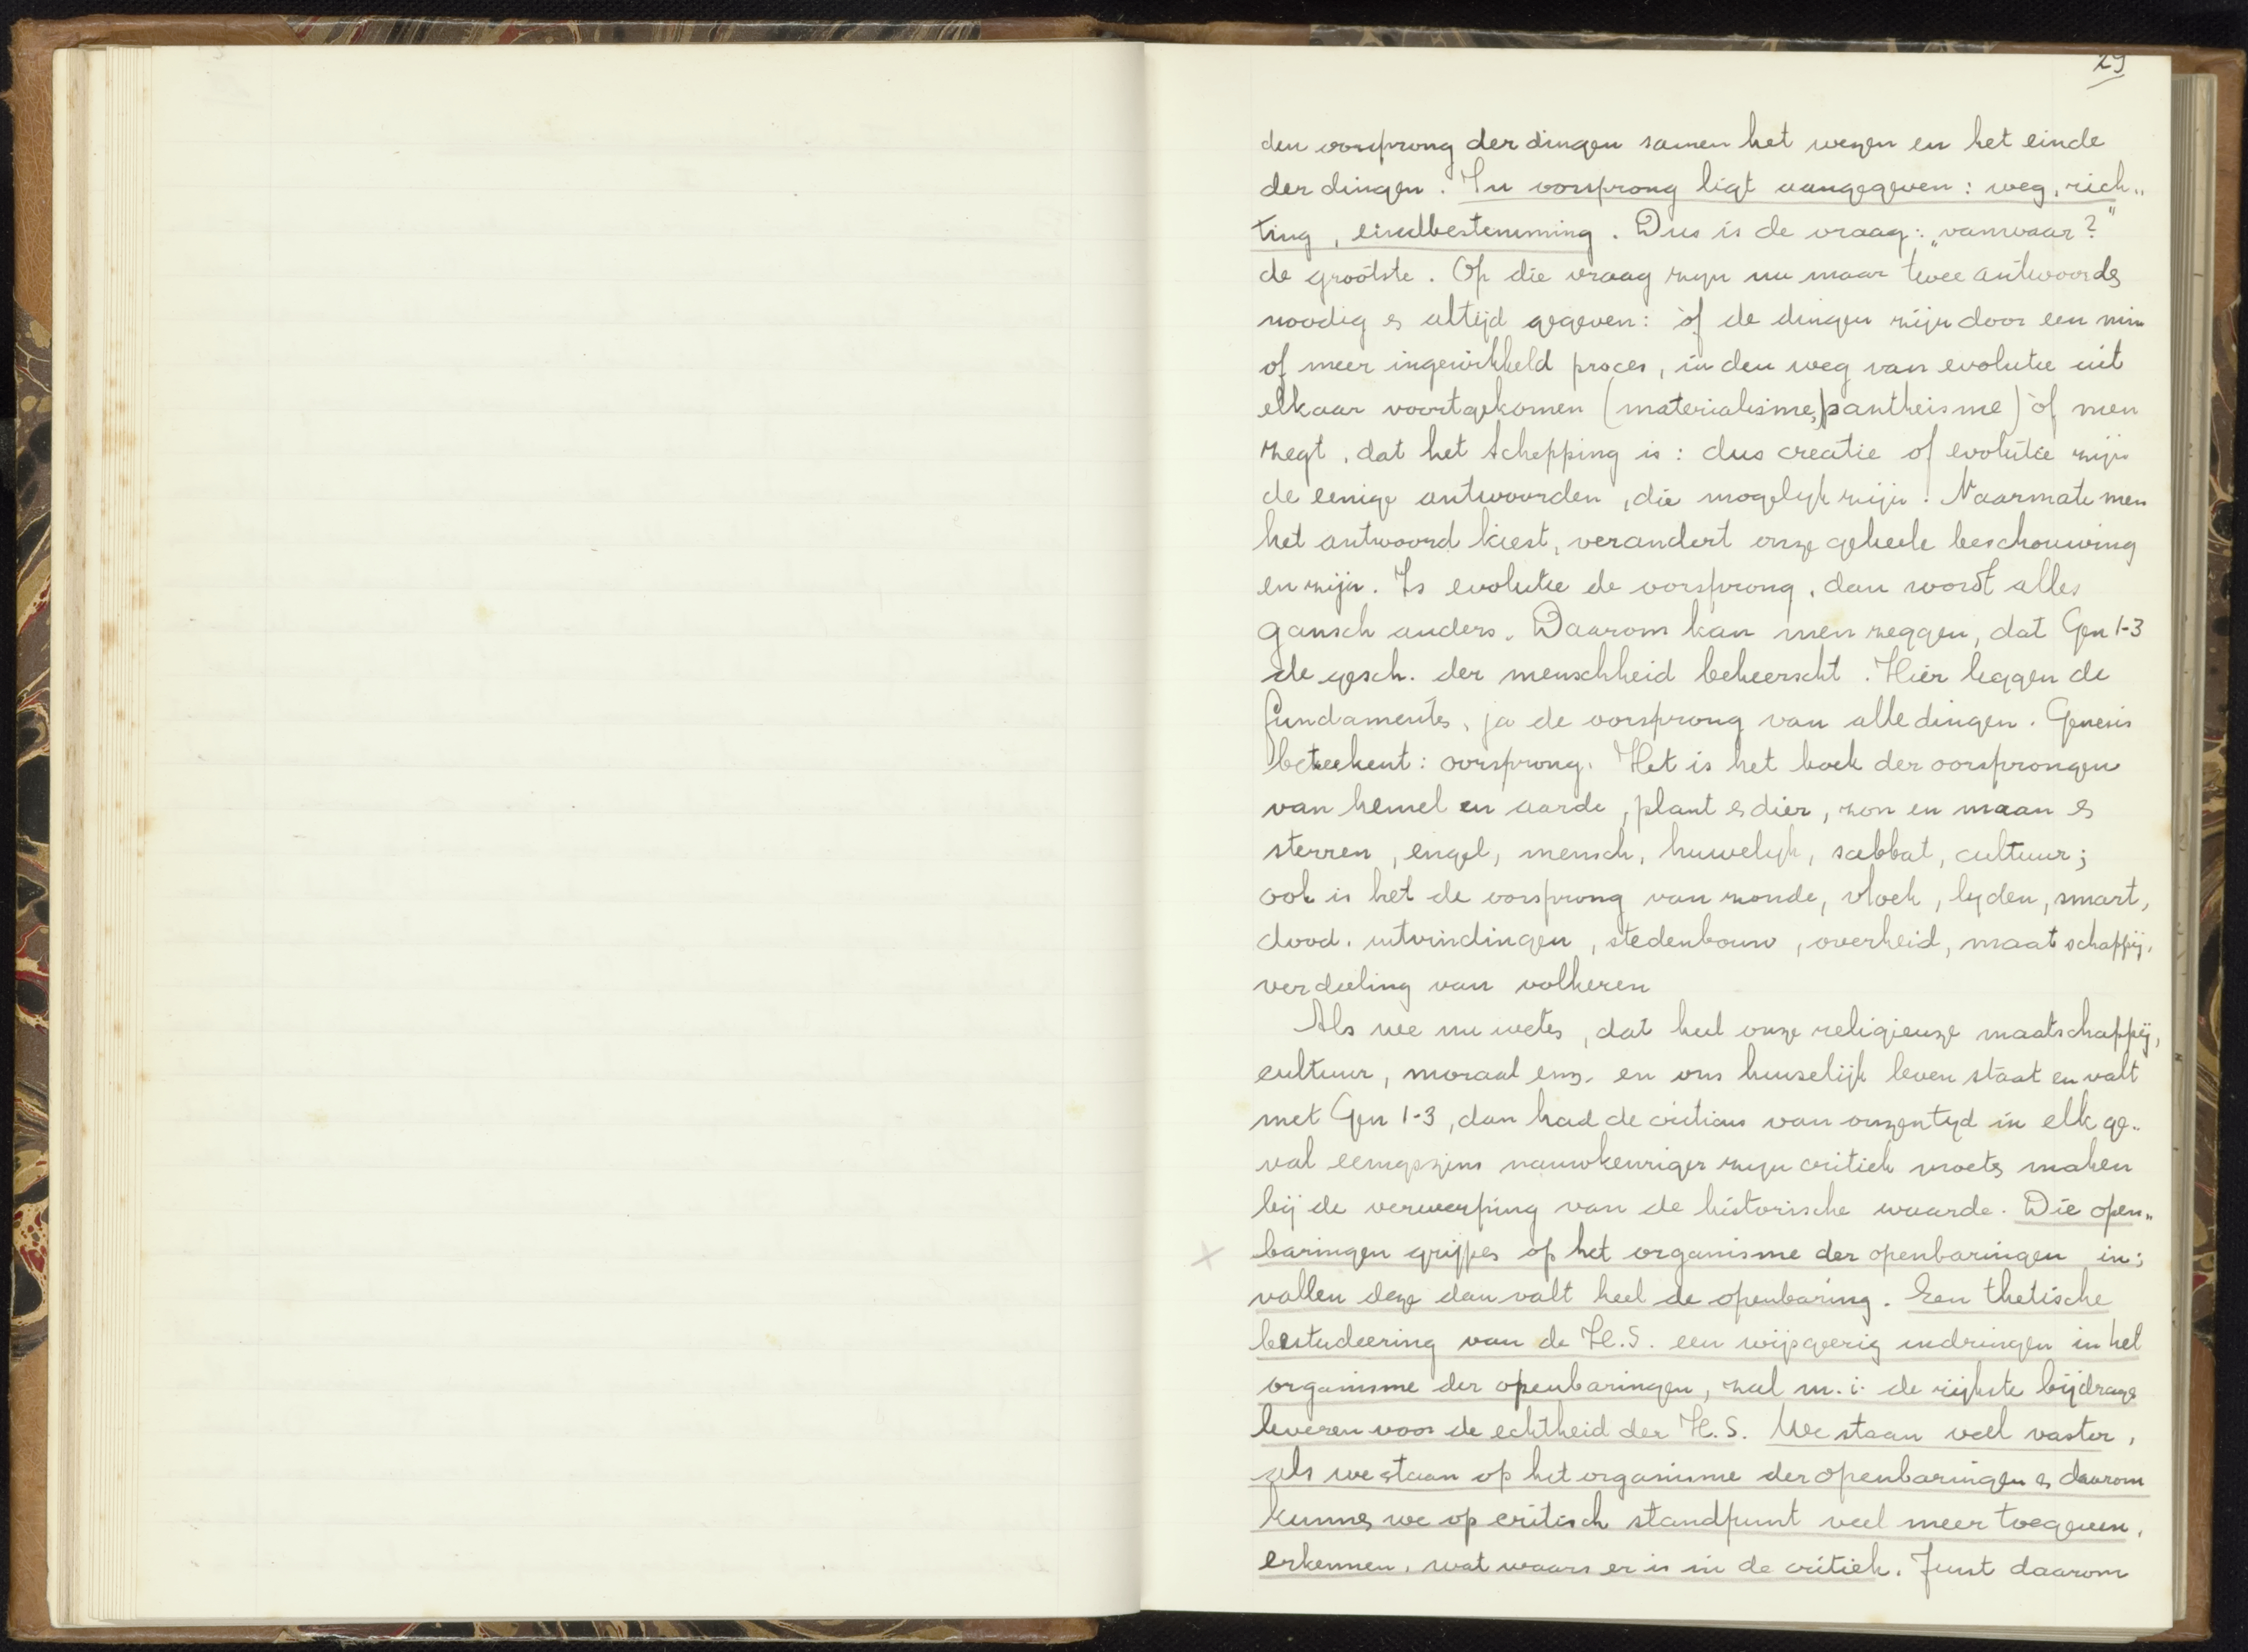 29
den oorsprong der dingen samen het wezen en het einde
der dingen. In oorsprong ligt aangegeven: weg, rich„
ting, eindbestemming. Dus is de vraag: „vanwaar?"
de grootste. Op die vraag zijn nu maar twee antwoorden
noodig en altijd gegeven: òf de dingen zijn door een min
of meer ingewikkeld proces, in den weg van evolutie uit
elkaar voortgekomen (materialisme, pantheisme) òf men
zegt, dat het schepping is: dus creatie of evolutie zijn
de eenige antwoorden, die mogelijk zijn. Naarmate men
het antwoord kiest, verandert onze geheele beschouwing
en zijn. Is evolutie de oorsprong, dan wordt alles
gansch anders. Daarom kan men zeggen, dat Gen 1-3
de gesch. der menschheid beheerscht. Hier leggen de
fundamenten, ja de oorsprong van alle dingen. Genesis
beteekent: oorsprong. Het is het boek der oorsprongen
van hemel en aarde, plant en dier, zon en maan en
sterren, engel, mensch, huwelijk, sabbat, cultuur;
ook is het de oorsprong van zonde, vloek, lyden, smart,
dood. uitvindingen, stedenbouw, overheid, maatschappij,
verdeeling van volkeren
Als we nu weten, dat heel onze religieuze maatschappij,
cultuur, moraal enz. en ons huiselijk leven staat en valt
met Gen 1-3, dan had de criticus van onzen tyd in elk ge„
val eenigszins nauwkeuriger zyn critiek moeten maken
bij de verwerping van de historische waarde. Die open„
baringen grijpen op het organisme der openbaringen in;
vallen deze dan valt heel de openbaring. Een thetische
bestudeering van de H.S. een wijsgeerig indringen in het
organisme der openbaringen, zal m.i. de rijkste bijdrage
leveren voor de echtheid der H.S. We staan veel vaster,
als we staan op het organisme der openbaringen en daarom
kunnen we op critisch standpunt veel meer toegeven,
erkennen, wat waars er is in de critiek. Juist daarom